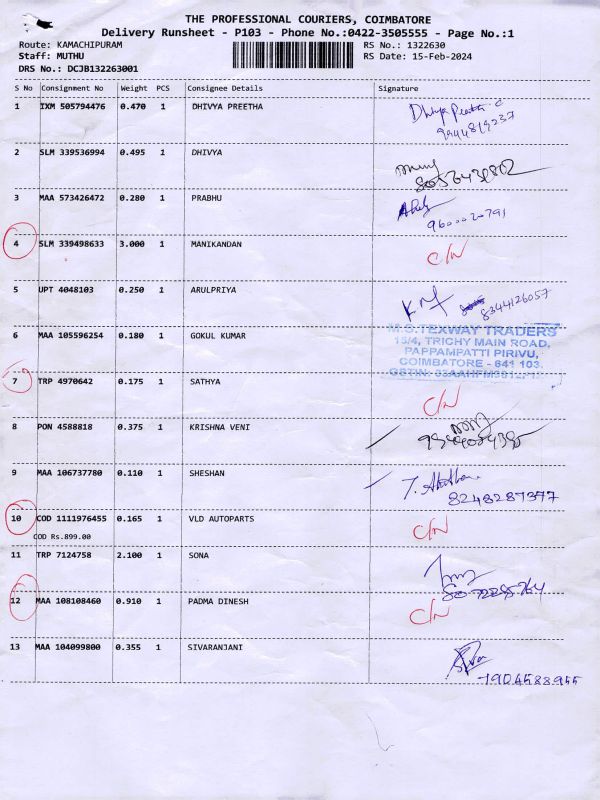 THE PROFESSIONAL COURIERS, COIMBATORE
Delivery Runsheet - P103 - Phone No.:0422-3505555 - Page No.:1
Route: KAMACHIPURAM RS No.: 1322630
Staff: MUTHU RS Date: 15-Feb-2024
DRS No.: DCJB132263001
S No Consignment No Weight PCS Consignee Details Signature
1 IXM 505794476 0.470 1 DHIVYA PREETHA Dhivya Preetha C
9944819237
2 SLM 339536994 0.495 1 DHIVYA
3 MAA 573426472 0.280 1 PRABHU
9600020791
4 SLM 339498633 3.000 1 MANIKANDAN C/N
5 UPT 4048103 0.250 1 ARULPRIYA
8344126057
6 MAA 105596254 0.180 1 GOKUL KUMAR M.S.TEXWAY TRADERS
15/4, TRICHY MAIN ROAD,
PAPPAMPATTI PIRIVU,
COIMBATORE - 641 103.
7 TRP 4970642 0.175 1 SATHYA C/N
8 PON 4588818 0.375 1 KRISHNA VENI
9 MAA 106737780 0.110 1 SHESHAN
8248287377
10 COD 1111976455 0.165 1 VLD AUTOPARTS C/N
COD Rs.899.00
11 TRP 7124758 2.100 1 SONA
12 MAA 108108460 0.910 1 PADMA DINESH C/N
13 MAA 104099800 0.355 1 SIVARANJANI
7904583955